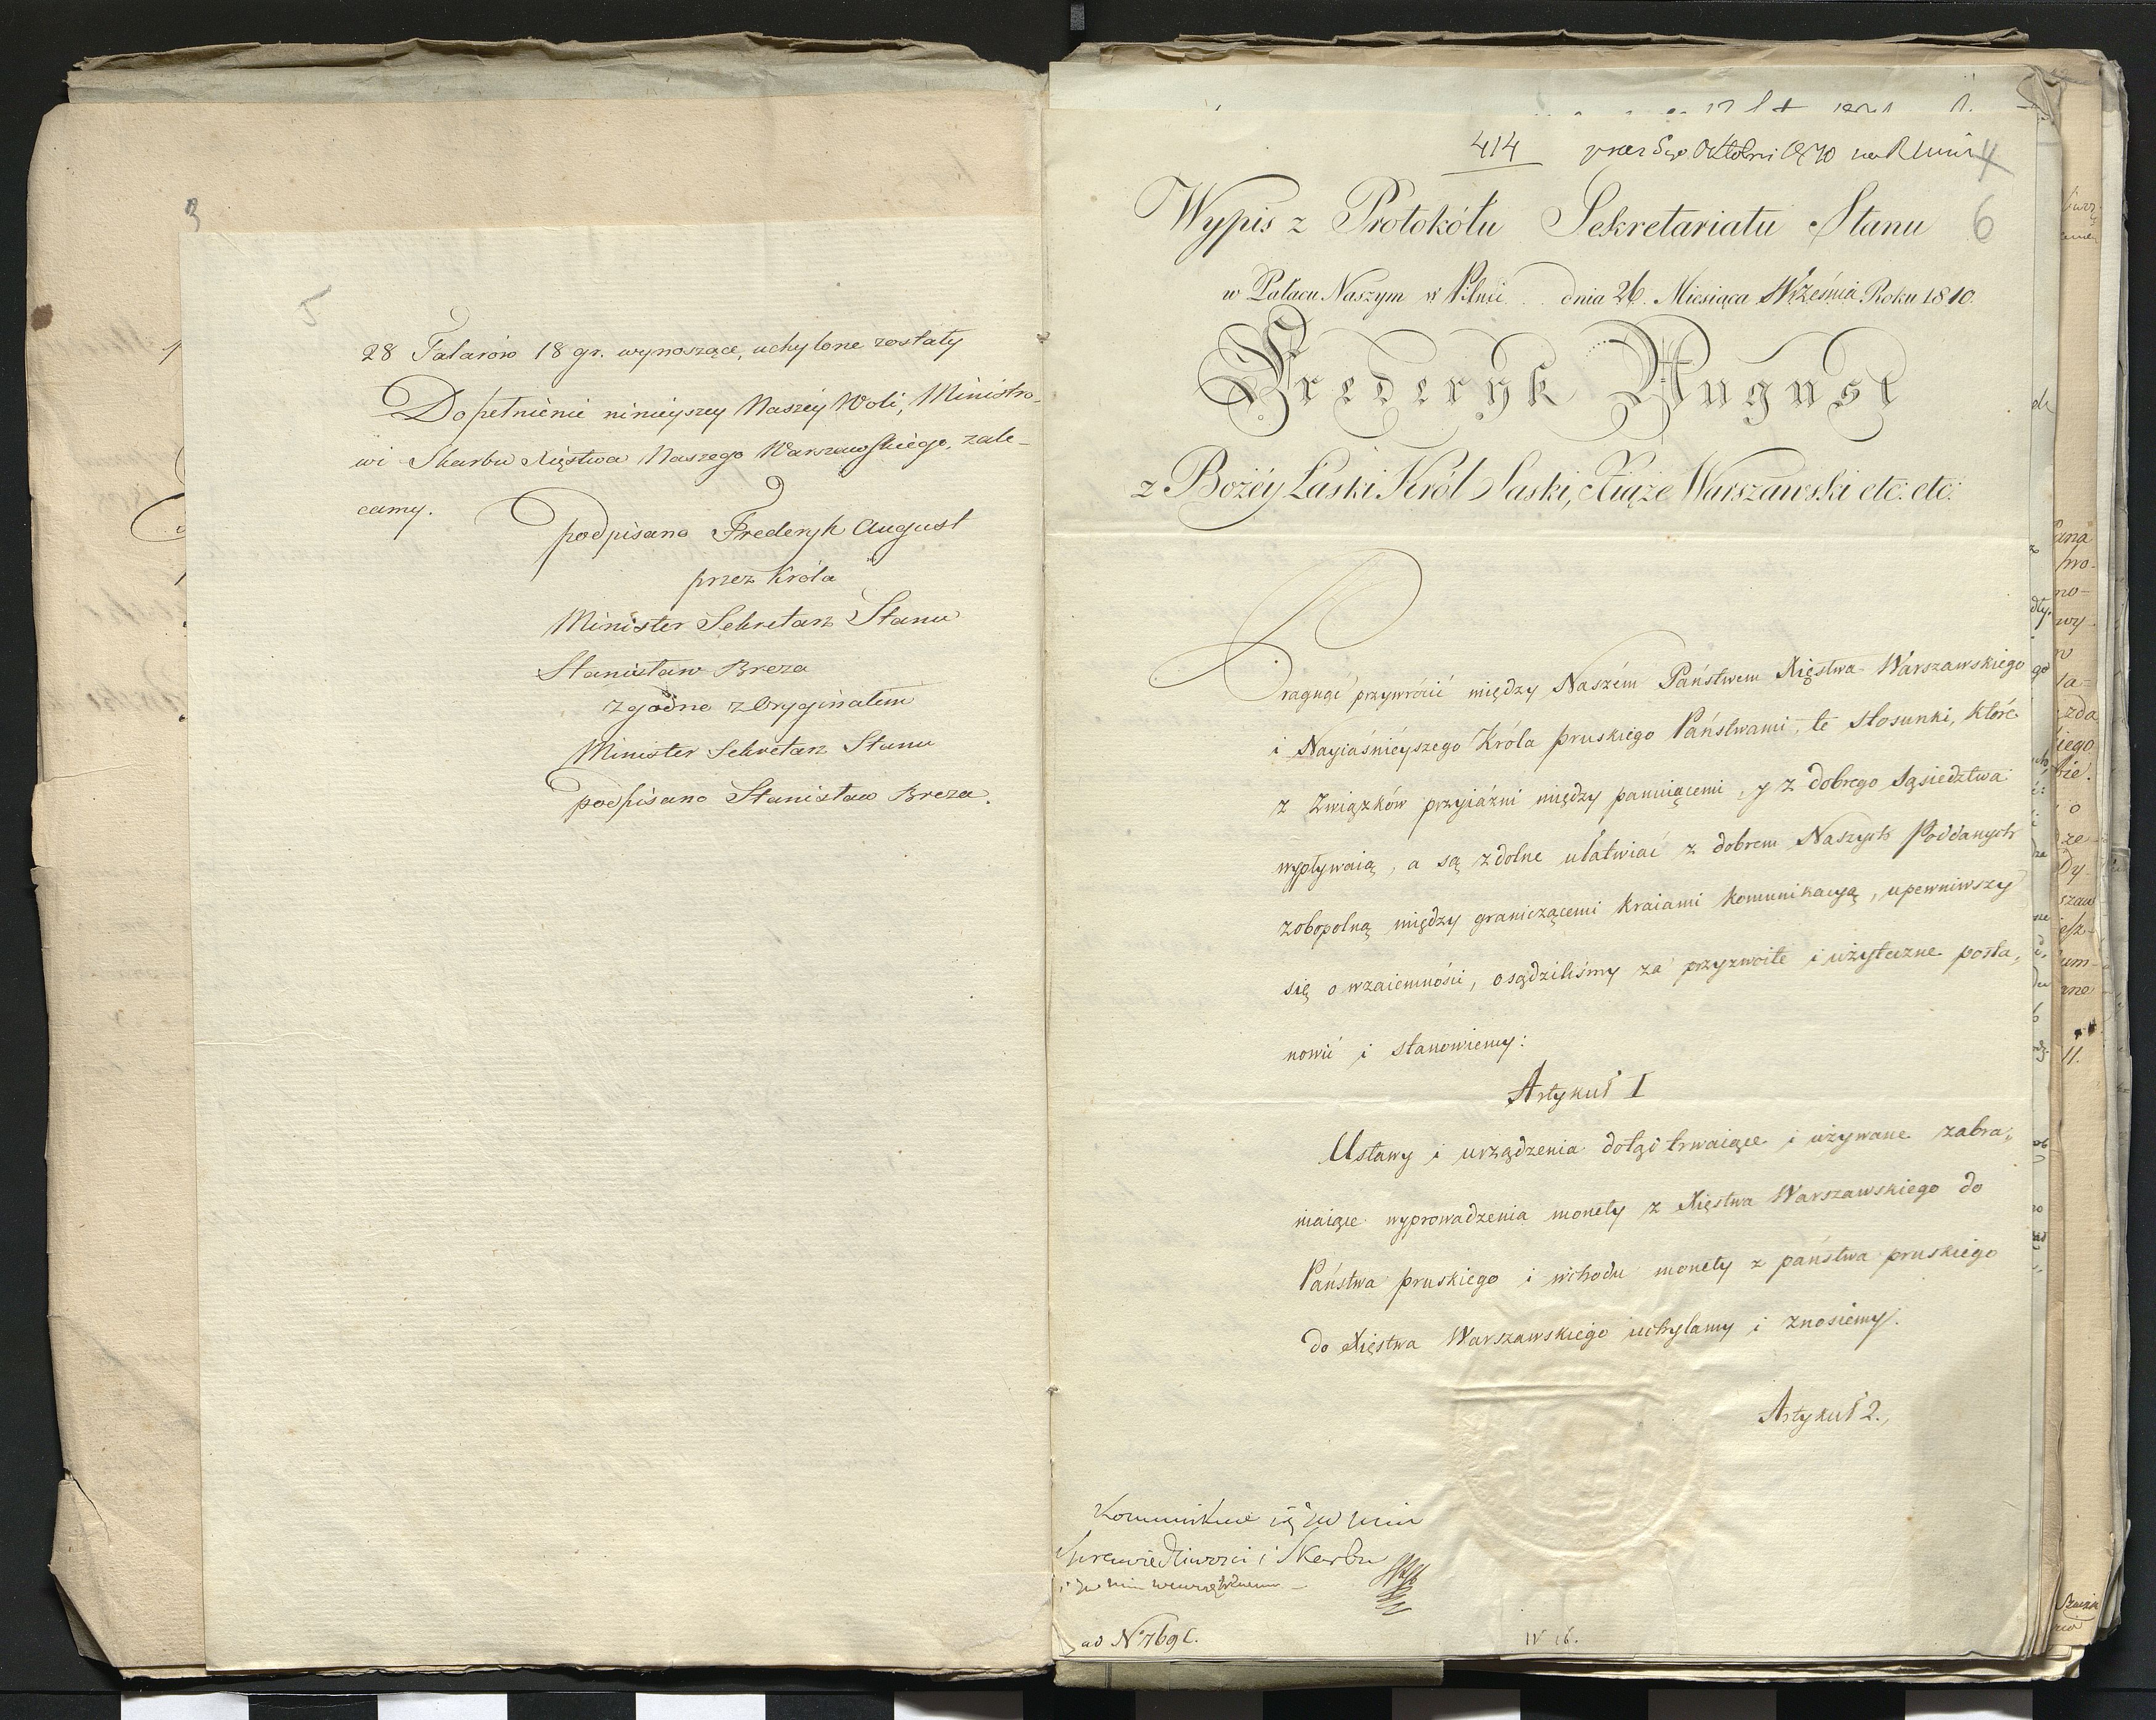 3
5
28 Talarów 18 gr. wynoszące, uchylone zostały
Dopełnienie ninieyszey Naszey Woli, Ministro-
wi Skarbu Xięstwa Naszego Warszawskiego, zale-
camy.
podpisano Frederyk August
przez Króla
Minister Sekretarz Stanu
Stanisław Breza
zgodno z Oryginałem
Minister Sekretarz Stanu
podpisano Stanisław Breza.
414 Octobris 1810
4
Wypis z Protokółu Sekretariatu Stanu 6
w Pałacu Naszym w Pilnic dnia 26. Miesiąca Września Roku 1810.
Frederyk August
z Bożéy Łaski Król Saski, Xiąże Warszawski etc: etc:
Pragnąć przywrócić między Naszém Państwem Xięstwa Warszawskiego
i Nayiaśnieyszego Króla pruskiego Państwami, te stosunki, które
z Związków przyiaźni między panuiącemi, y z dobrego sąsiedztwa
wypływaią, a są zdolne ułatwiać z dobrem Naszych Poddanych
zobopolną między graniczącemi kraiami komunikacyą, upewniwszy
się o wzaiemności, osądziliśmy za przyzwoite i użyteczne posta„
nowić i stanowiemy:
Artykuł I
Ustawy i urządzenia dotąd trwaiące i używane zabra„
niaiące wyprowadzenia monety z Xięstwa Warszawskiego do
Państwa pruskiego i wchodu monety z państwa pruskiego
do Xięstwa Warszawskiego uchylamy i znosiemy.
Artykuł 2.,
Sprawiedliwości i Skarbu
ad N° 769
IV 16.